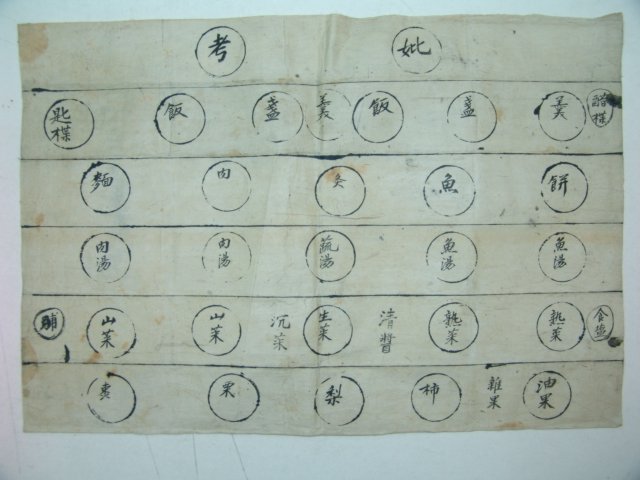 考 妣
匙楪 飯 盞 羹 飯 盞 羹 醋楪
麵 肉 炙 魚 餠
肉湯 肉湯 蔬湯 魚湯 魚湯
脯 山菜 山菜 沉菜 生菜 淸醬 熟菜 熟菜 食醢
棗 栗 梨 柿 雜果 油果